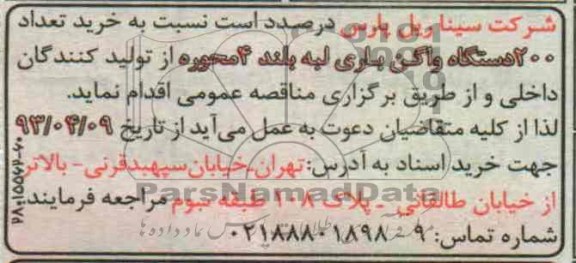 شرکت سینا ریل پارس درصدد است نسبت به خرید تعداد
۲۰۰دستگاه واگن باری لبه بلند ۴محوره از تولید کنندگان
داخلی و از طریق برگزاری مناقصه عمومی اقدام نماید.
لذا از کلیه متقاضیان دعوت به عمل می‌آید از تاریخ ۹۳/۰۴/۰۹
جهت خرید اسناد به آدرس:تهران-خیابان سپهبدقرنی-بالاتر
از خیابان طالقانی - پلاک ۱۰۸ طبقه سوم مراجعه فرمایند.
شماره تماس: ۹-۰۲۱۸۸۸۰۱۸۹۸
ParsNamadData